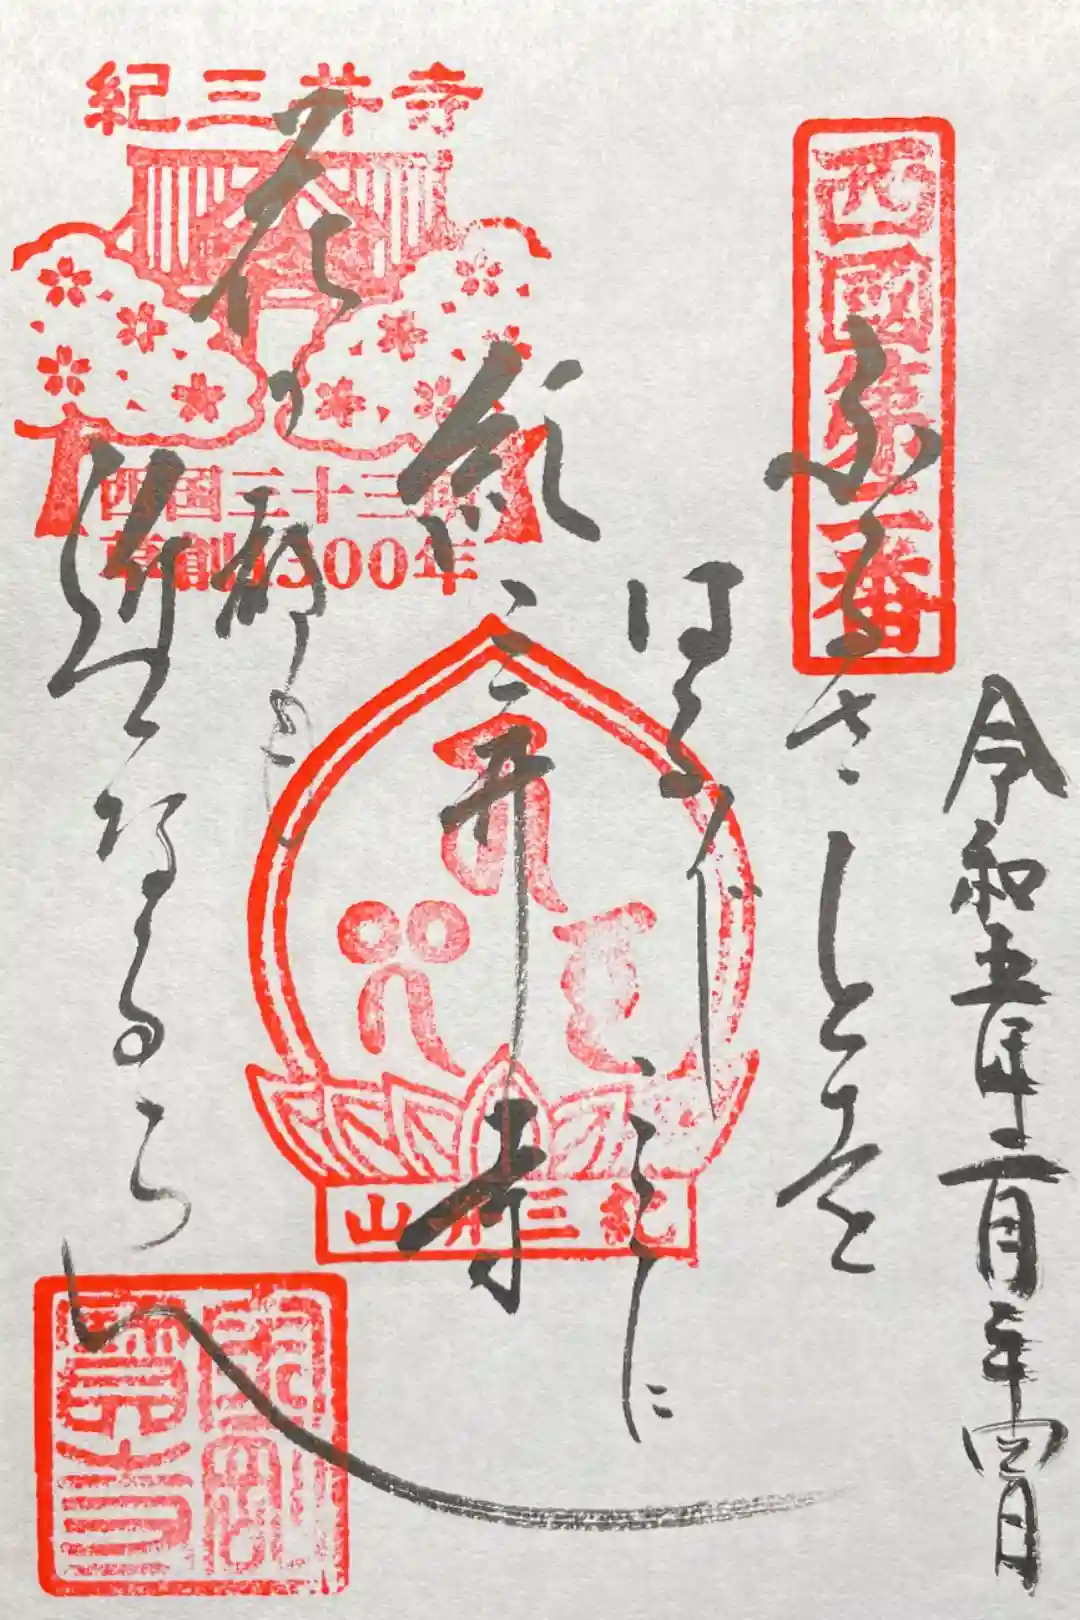 令和五年二月二十四日
西國第二番
ふるさとを
はるばるここに
紀三井寺
花の都も
近くなるらん
紀三井寺
西国三十三所
草創1300年
紀三井山